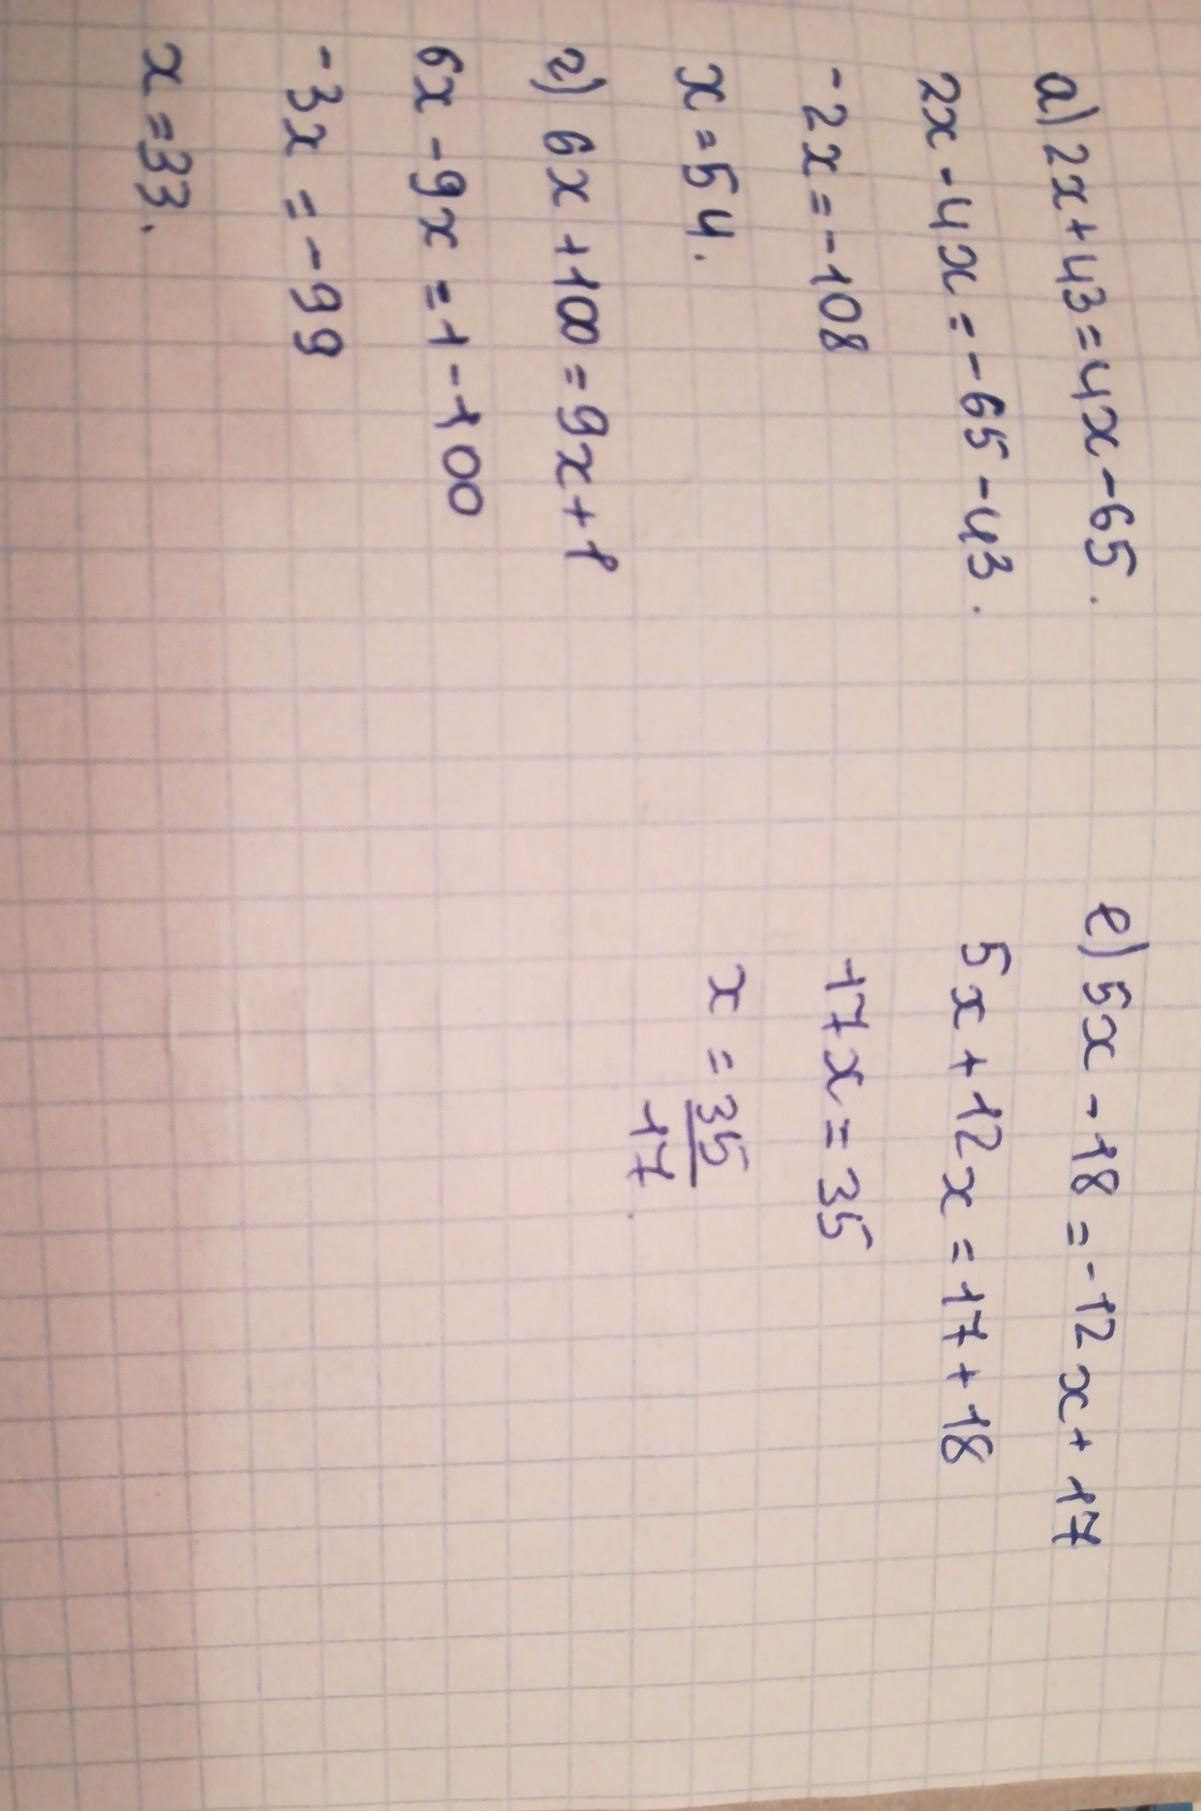 а) 2x+43=4x-65.
2x-4x=-65-43.
-2x=-108
x=54.
г) 6x+100=9x+1
6x-9x=1-100
-3x=-99
x=33.
е) 5x-18=-12x+17
5x+12x=17+18
17x=35
x=35/17.